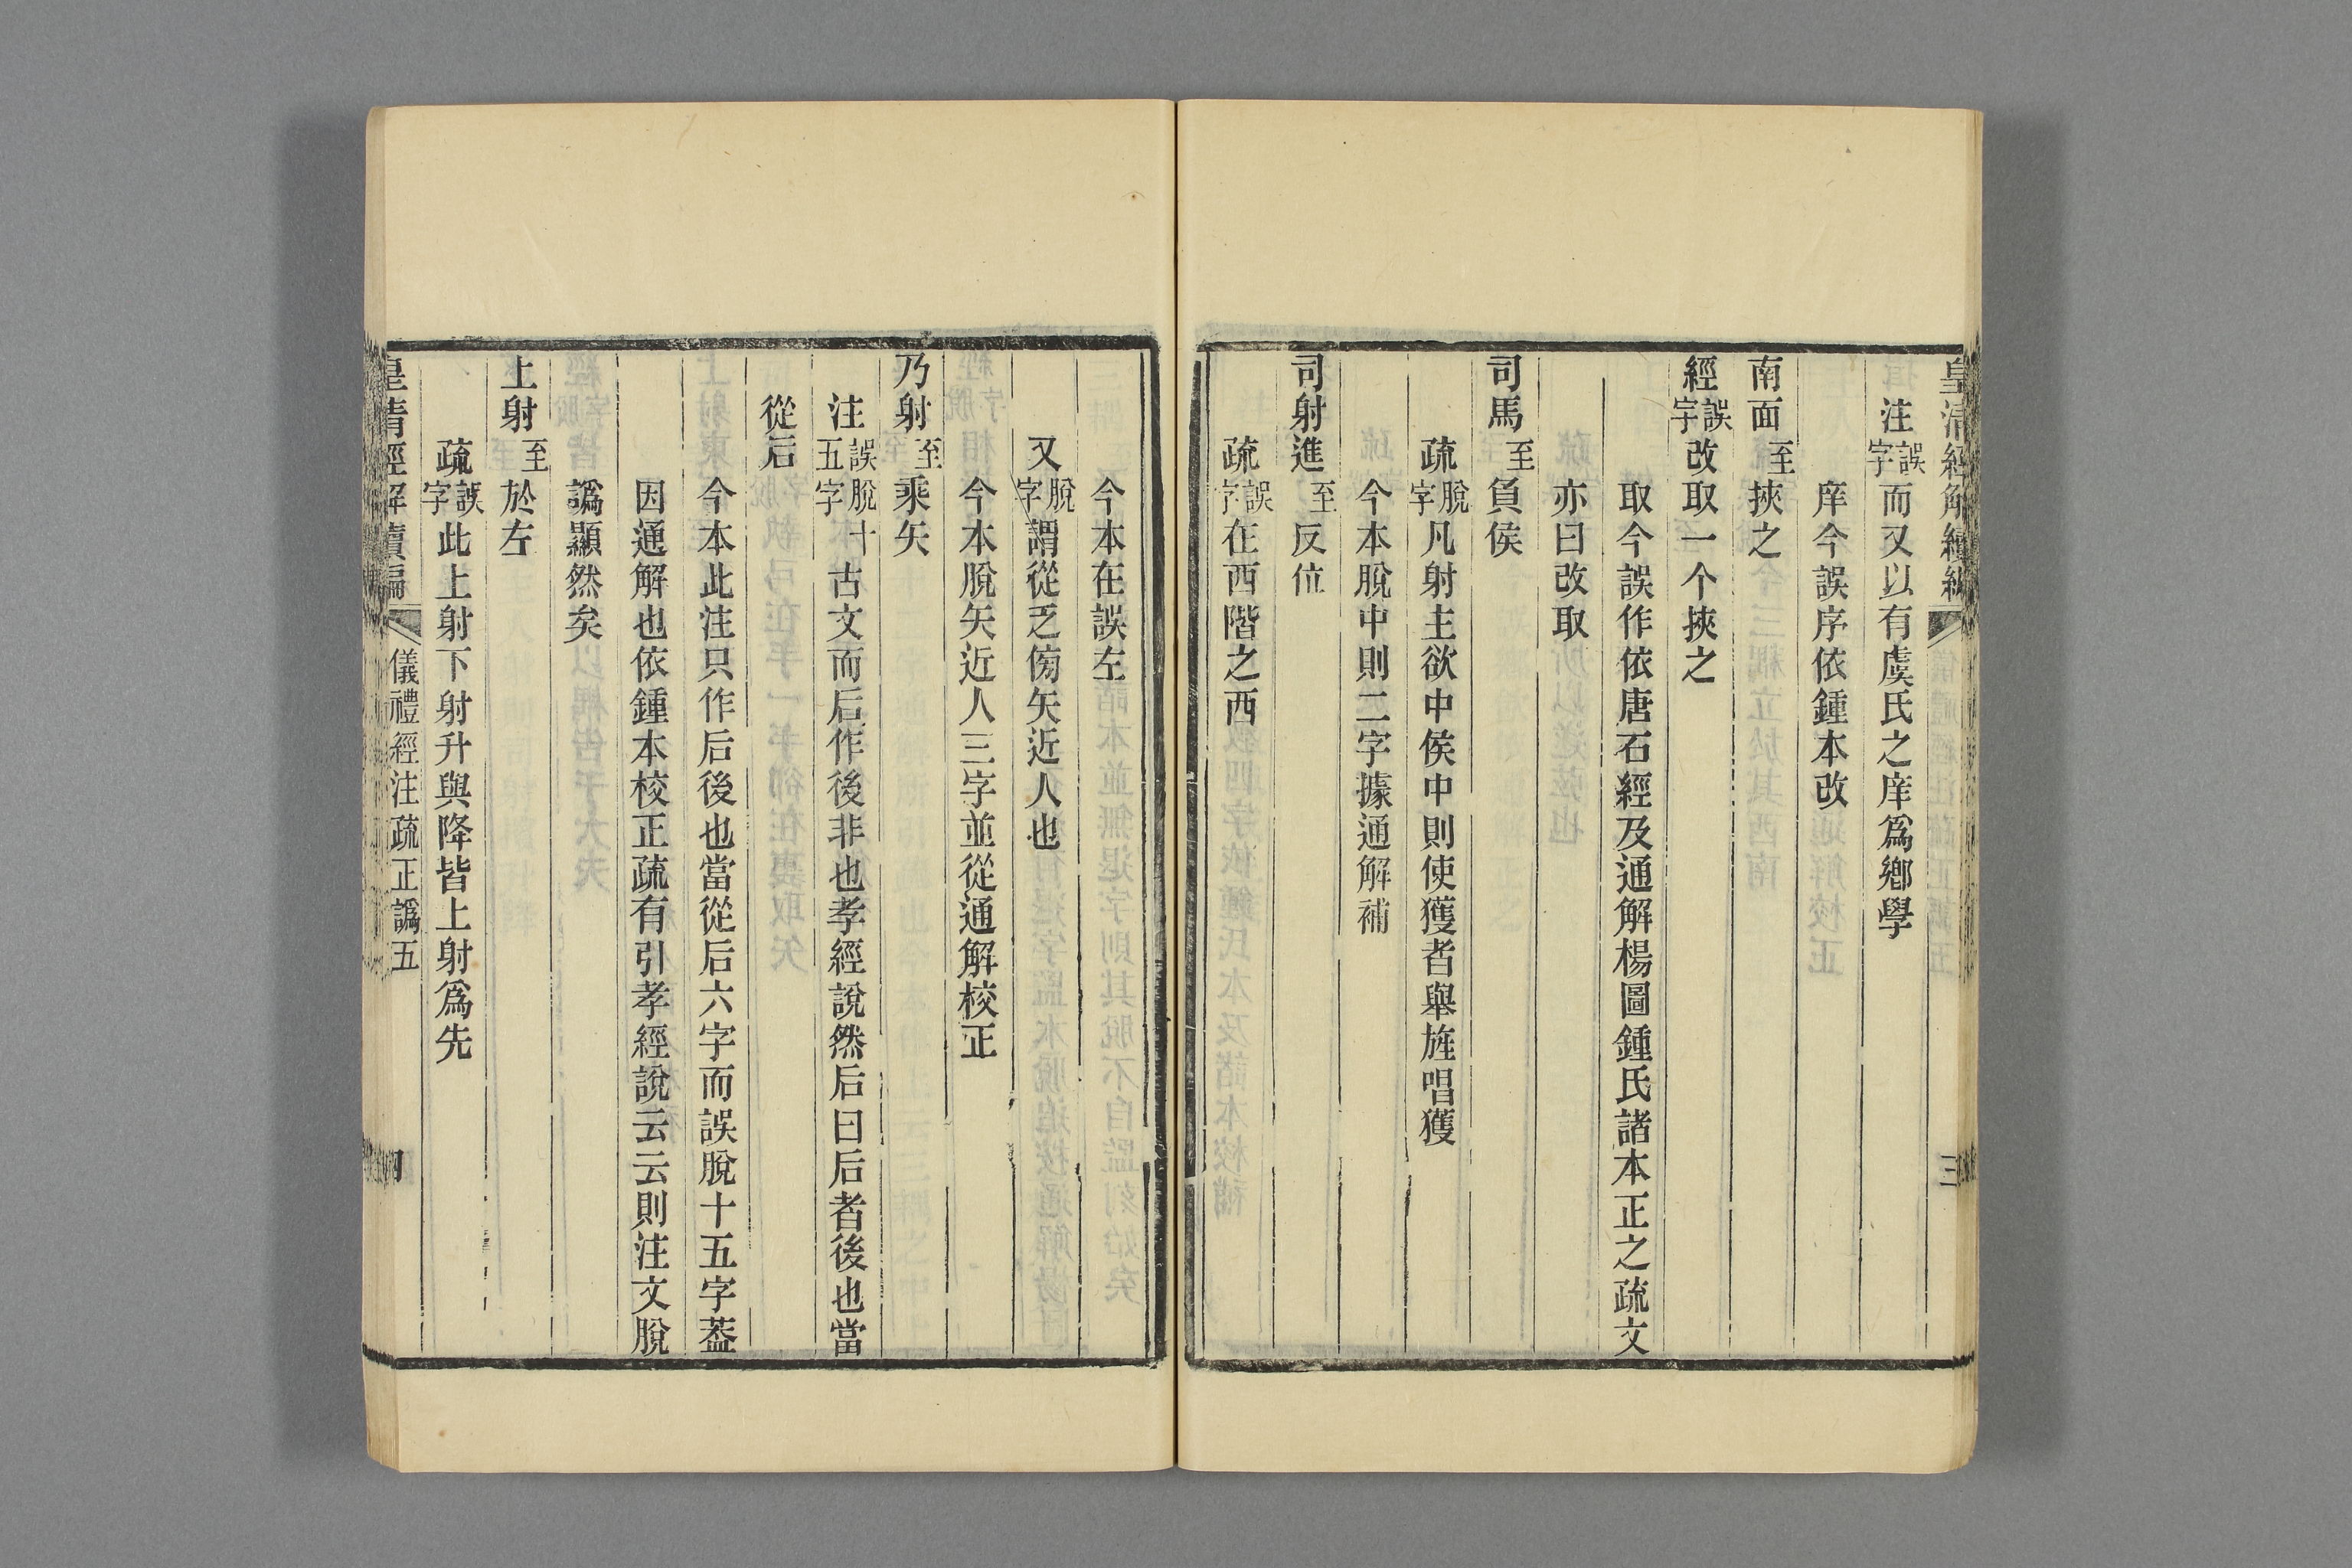 皇清經解續編
三
注誤字而又以有虞氏之庠爲鄉學
庠今誤序依鍾本改
南面至挾之
經誤字改取一个挾之
取今誤作依唐石經及通解楊圖鍾氏諸本正之疏文
亦曰改取
司馬至負侯
疏脫字凡射主欲中侯中則使獲者舉旌唱獲
今本脫中則二字據通解補
司射進至反位
疏誤字在西階之西
今本在誤左
又脫字謂從乏傍矢近人也
今本脫矢近人三字並從通解校正
乃射至乘矢
注誤脫十五字古文而后作後非也孝經說然后曰后者後也當
從后
今本此注只作后後也當從后六字而誤脫十五字葢
因通解也依鍾本校正疏有引孝經說云云則注文脫
譌顯然矣
上射至於左
疏誤字此上射下射升與降皆上射爲先
皇清經解續編
儀禮經注疏正譌五
四